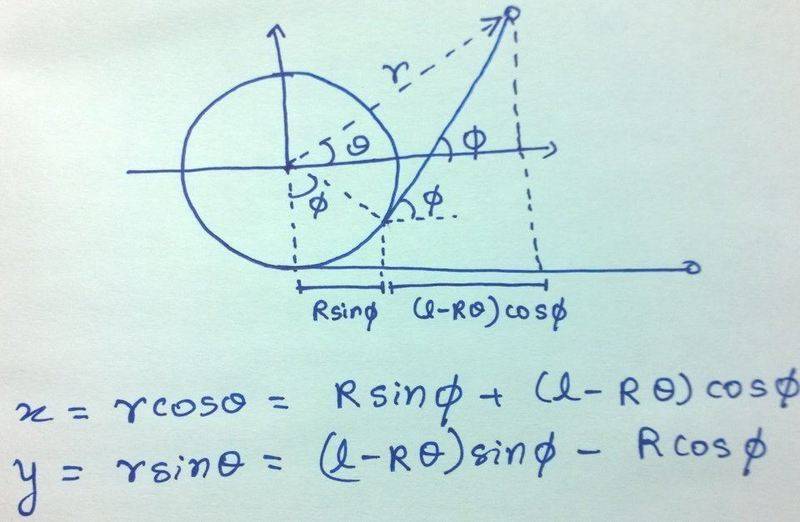 r
θ
ϕ
ϕ
ϕ
Rsinϕ (l-Rθ)cosϕ
x = rcosθ = Rsinϕ + (l-Rθ)cosϕ
y = rsinθ = (l-Rθ)sinϕ - Rcosϕ